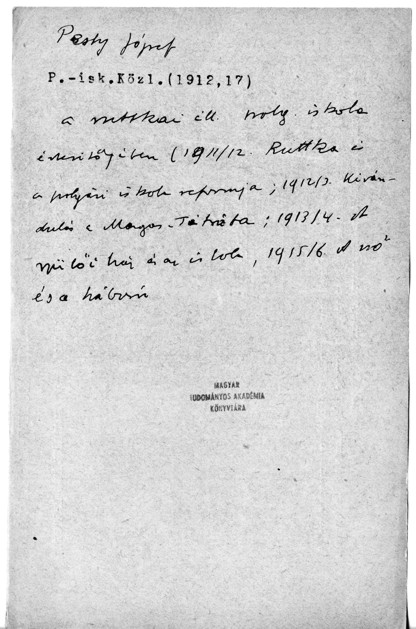 Pesty József
P.-isk.Közl.(1912,17)
a ruttkai áll. polg. iskola
értesítőjében (1911/12. Ruttka és
a polgári iskola reformja; 1912/3. Kirán-
dulás a Magas-Tátrába; 1913/4. A
szülői ház és az iskola, 1915/6 A nő
és a háború
MAGYAR
TUDOMÁNYOS AKADÉMIA
KÖNYVTÁRA